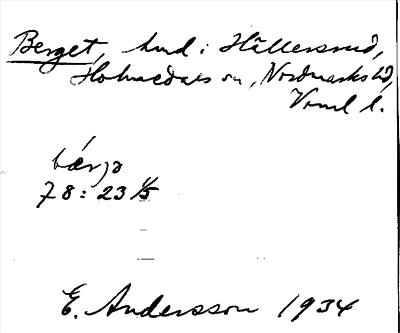 Berget, hmd i Hällersrud,
Holmedals sn, Nordmarks hd,
Vrml l.
bærjə
78: 23 1/5
E. Andersson 1934